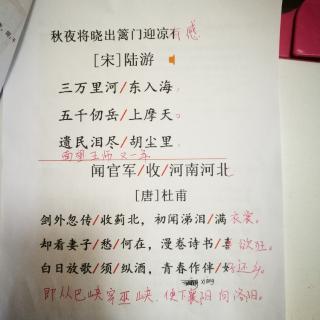 秋夜将晓出篱门迎凉有感
[宋]陆游
三万里河/东入海,
五千仞岳/上摩天。
遗民泪尽/胡尘里,
南望王师又一年
闻官军/收/河南河北
[唐]杜甫
剑外忽传/收蓟北,初闻涕泪/满衣裳。
却看妻子/愁/何在,漫卷诗书/喜欲狂。
白日放歌/须/纵酒,青春作伴/好还乡。
即从巴峡穿巫峡,便下襄阳向洛阳。